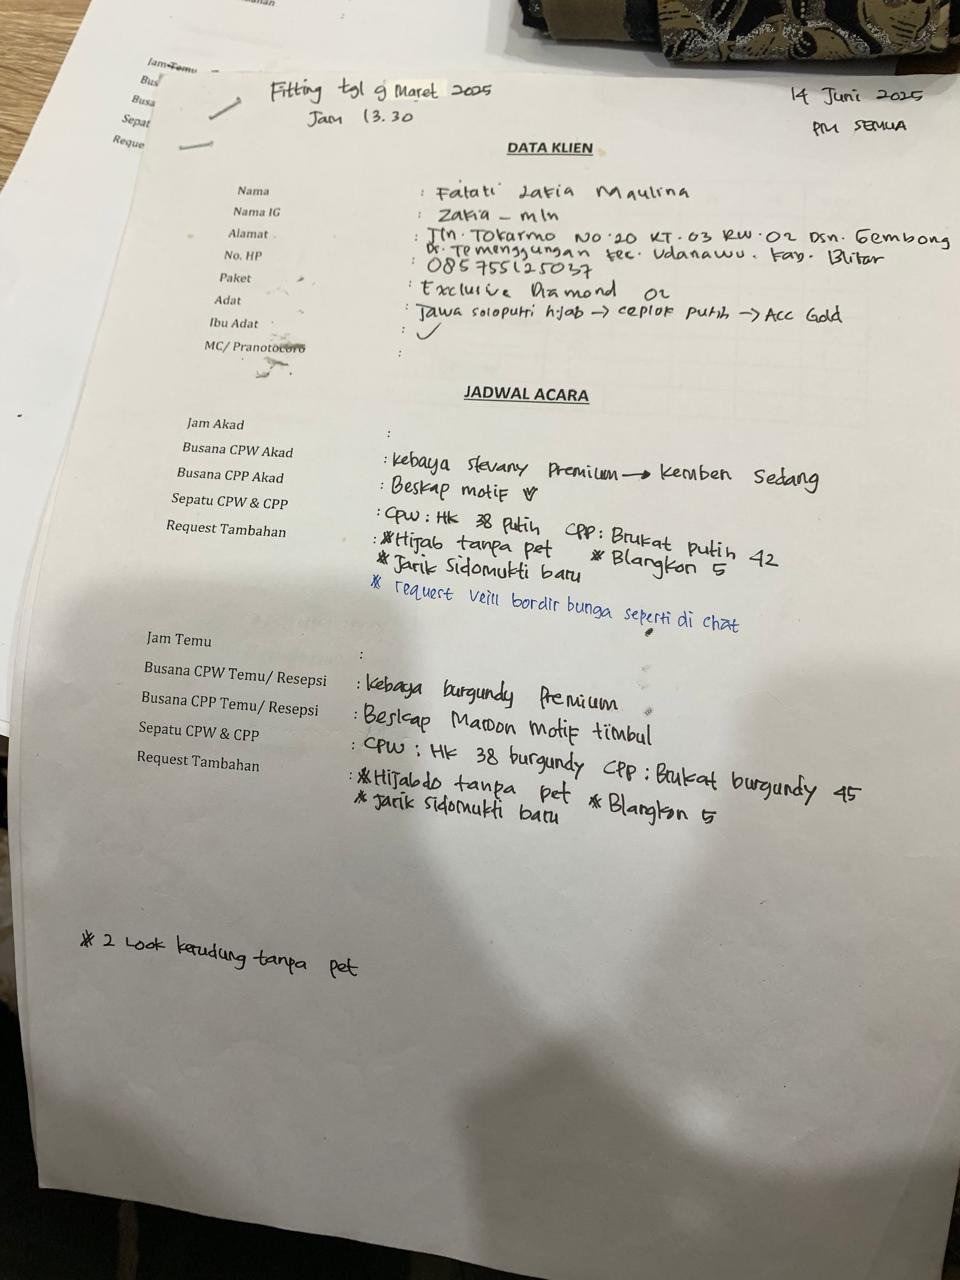 Jam Temu
Bus
Busa
Sepat
Reque
Fitting tgl 9 Maret 2025
Jam 13.30
14 Juni 2025
PM SEMUA
DATA KLIEN
Nama : Fatati Zakia Maulina
Nama IG : Zakia - mln
Alamat : Jln. Tokarmo No.20 RT.03 RW.02 Dsn. Gembong
Ds. Temenggungan kec. Udanawu. Kab. Blitar
No. HP : 085755125037
Paket : Exclusive Diamond 02
Adat : Jawa soloputri hijab → ceplok putih → Acc Gold
Ibu Adat : ✓
MC/ Pranotocoro :
JADWAL ACARA
Jam Akad :
Busana CPW Akad : Kebaya stevany Premium → Kemben Sedang
Busana CPP Akad : Beskap motif V
Sepatu CPW & CPP : CPW : HK 38 Putih CPP : Brukat putih 42
Request Tambahan : * Hijab tanpa pet * Blangkon 5
* Jarik Sidomukti baru
* request veill bordir bunga seperti di chat
Jam Temu :
Busana CPW Temu/ Resepsi : Kebaya burgundy Premium
Busana CPP Temu/ Resepsi : Beskap Maroon motif timbul
Sepatu CPW & CPP : CPW : HK 38 burgundy CPP : Brukat burgundy 45
Request Tambahan : * Hijabdo tanpa pet * Blangkon 5
* Jarik sidomukti baru
* 2 Look kerudung tanpa pet